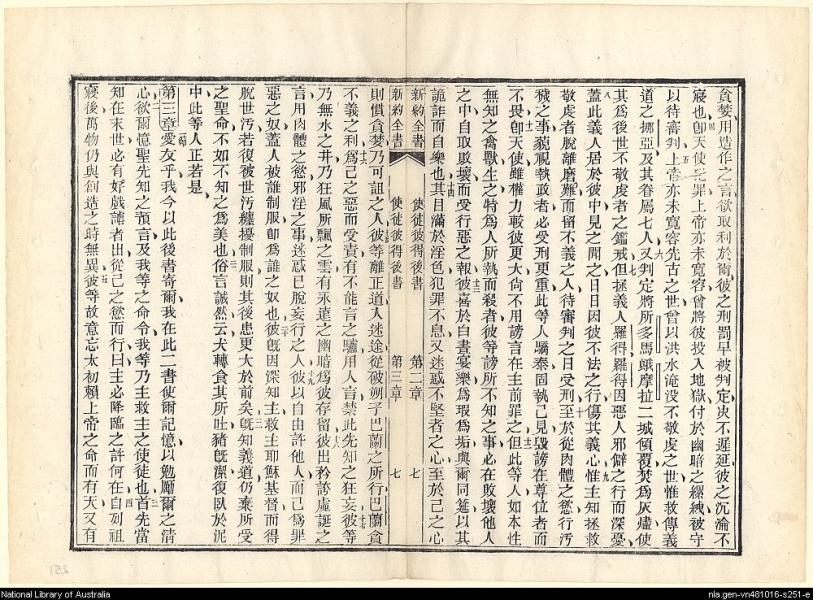 貪婪用造作之言欲取利於爾彼之刑罰早被判定决不遲延彼之沉淪不
寢也卽天使犯罪上帝亦未寬容曾將彼投入地獄付於幽暗之縲絏被守
以待審判上帝亦未寬容先古之世曾以洪水淹没不敬虔之世惟救傳義
道之挪亞及其眷屬七人又判定將所多馬蛾摩拉二城傾覆焚爲灰燼使
其爲後世不敬虔者之鑑戒但拯義人羅得羅得因惡人邪僻之行而深憂
蓋此義人居於彼中見之聞之日日因彼不法之行傷其義心惟主知拯救
敬虔者脫離磨難而留不義之人待審判之日受刑至於從肉體之慾行污
穢之事藐視執政者必受刑更重此等人驕泰固執己見毀謗在尊位者而
不畏卽天使雖權力較彼更大尙不用謗言在主前罪之但此等人如本性
無知之禽獸生之特爲人所執而殺者彼等謗所不知之事必在敗壞他人
之中自取敗壞而受行惡之報彼喜於白晝宴樂爲瑕爲垢與爾同筵以其
詭詐而自樂也其目滿於淫色犯罪不息又迷惑不堅者之心至於己之心
新約全書 使徒彼得後書 第二章 七
新約全書 使徒彼得後書 第三章 七
則慣貪婪乃可詛之人彼等離正道入迷途從破朔子巴蘭之所行巴蘭貪
不義之利爲己之惡而受責有不能言之驢用人言禁此先知之狂妄彼等
乃無水之井乃狂風所飄之雲有永遠之幽暗爲彼存留彼出矜誇虛誕之
言用肉體之慾邪淫之事迷惑已脫妄行之人彼以自由許他人而己爲罪
惡之奴蓋人被誰制服卽爲誰之奴也彼旣因深知主救主耶穌基督而得
脫世污若復被世污纏擾制服則其後患更大於前矣旣知義道仍棄所受
之聖命不如不知之爲美也俗言誠然云犬轉食其所吐豬旣潔復臥於泥
中此等人正若是
第三章愛友乎我今以此後書寄爾我在此二書使爾記憶以勉厲爾之淸
心欲爾憶聖先知之預言及我等之命令我等乃主救主之使徒也首先當
知在末世必有好戲謔者出從己之慾而行曰主必降臨之許何在自列祖
寢後萬物仍與創造之時無異彼等故意忘太初賴上帝之命而有天又有
National Library of Australia
nla.gen-vn481016-s251-e